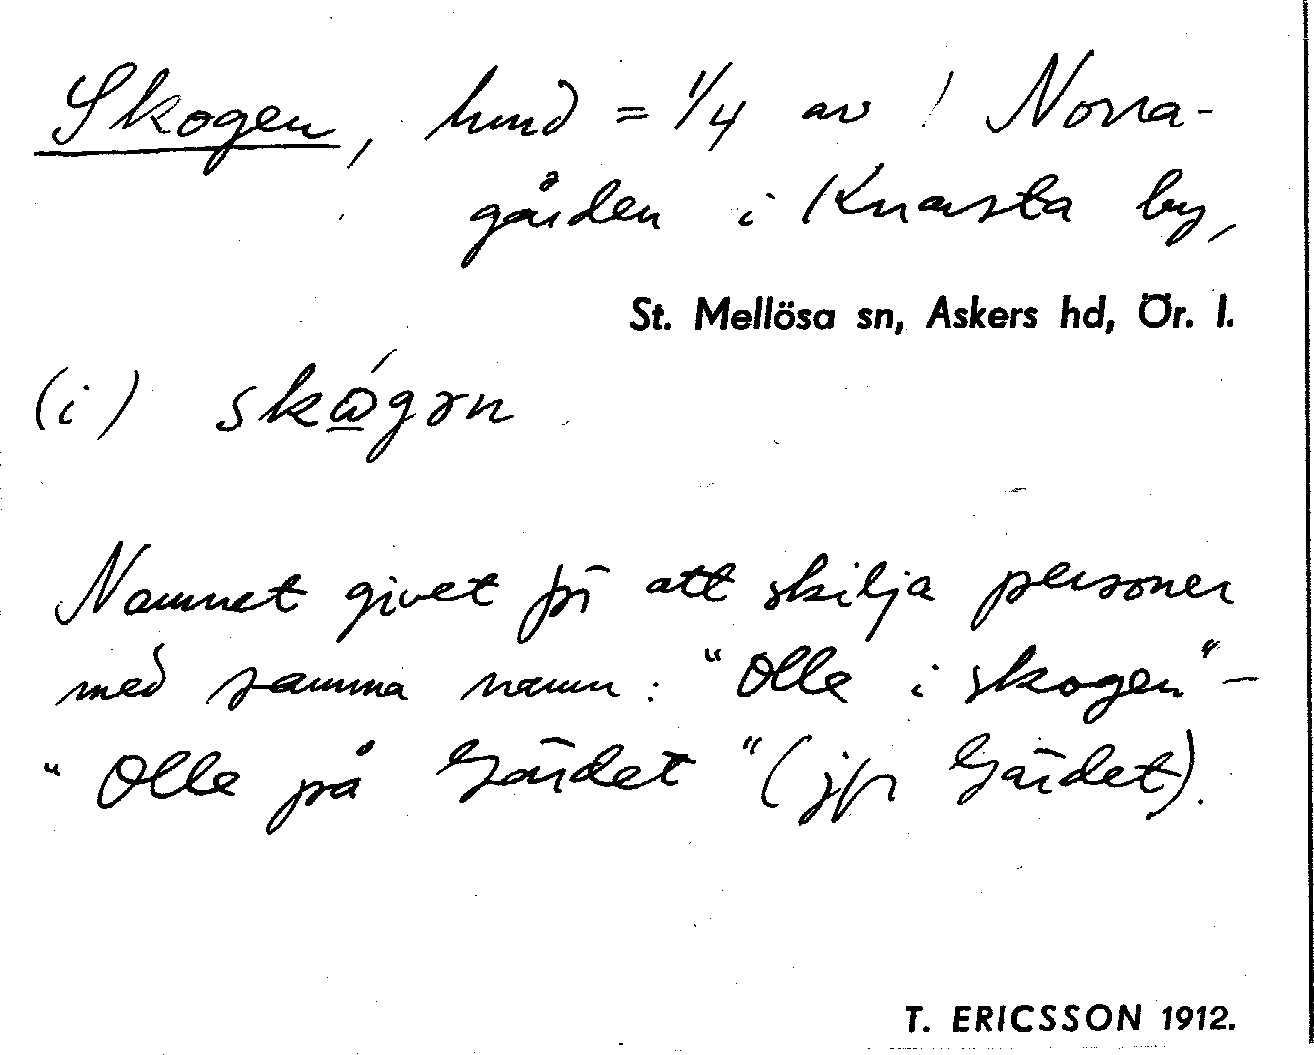 Skogen, hmd = 1/4 av Norra-
gården i Knarsta by,
St. Mellösa sn, Askers hd, Ör. l.
(i)
Namnet givet för att skilja personer
med samma namn: "Olle i skogen" –
"Olle på Gärdet" (jfr Gärdet).
T. ERICSSON 1912.